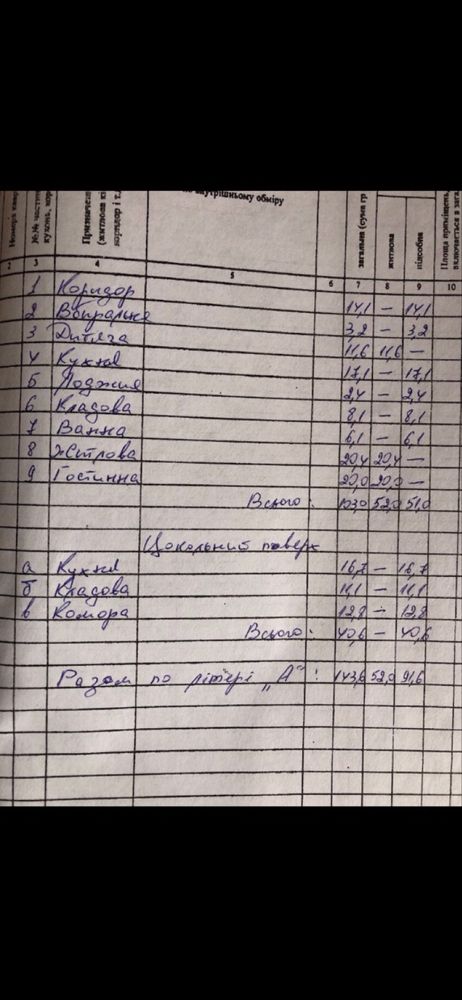 Номера квар
№№ частин
кухонь, кор
Призначен
(житлова кі
коридор і т.
внутрішньому обміру
загальна (сума гр
житлова
підсобна
Площа приміщень,
включається в зага
2 3 4 5 6 7 8 9 10
1 Коридор 14,1 — 14,1
2 Вбиральня 3,2 — 3,2
3 Дитяча 11,6 11,6 —
4 Кухня 17,1 — 17,1
5 Лоджия 2,4 — 2,4
6 Кладова 8,1 — 8,1
7 Ванна 6,1 — 6,1
8 20,4 20,4 —
9 Гостинна 20,0 20,0 —
Всього: 103,0 52,0 51,0
Цокольний поверх
а Кухня 16,7 — 16,7
б Кладова 11,1 — 11,1
в Комора 12,8 — 12,8
Всього: 40,6 — 40,6
Разом по літері „А“: 143,6 52,0 91,6